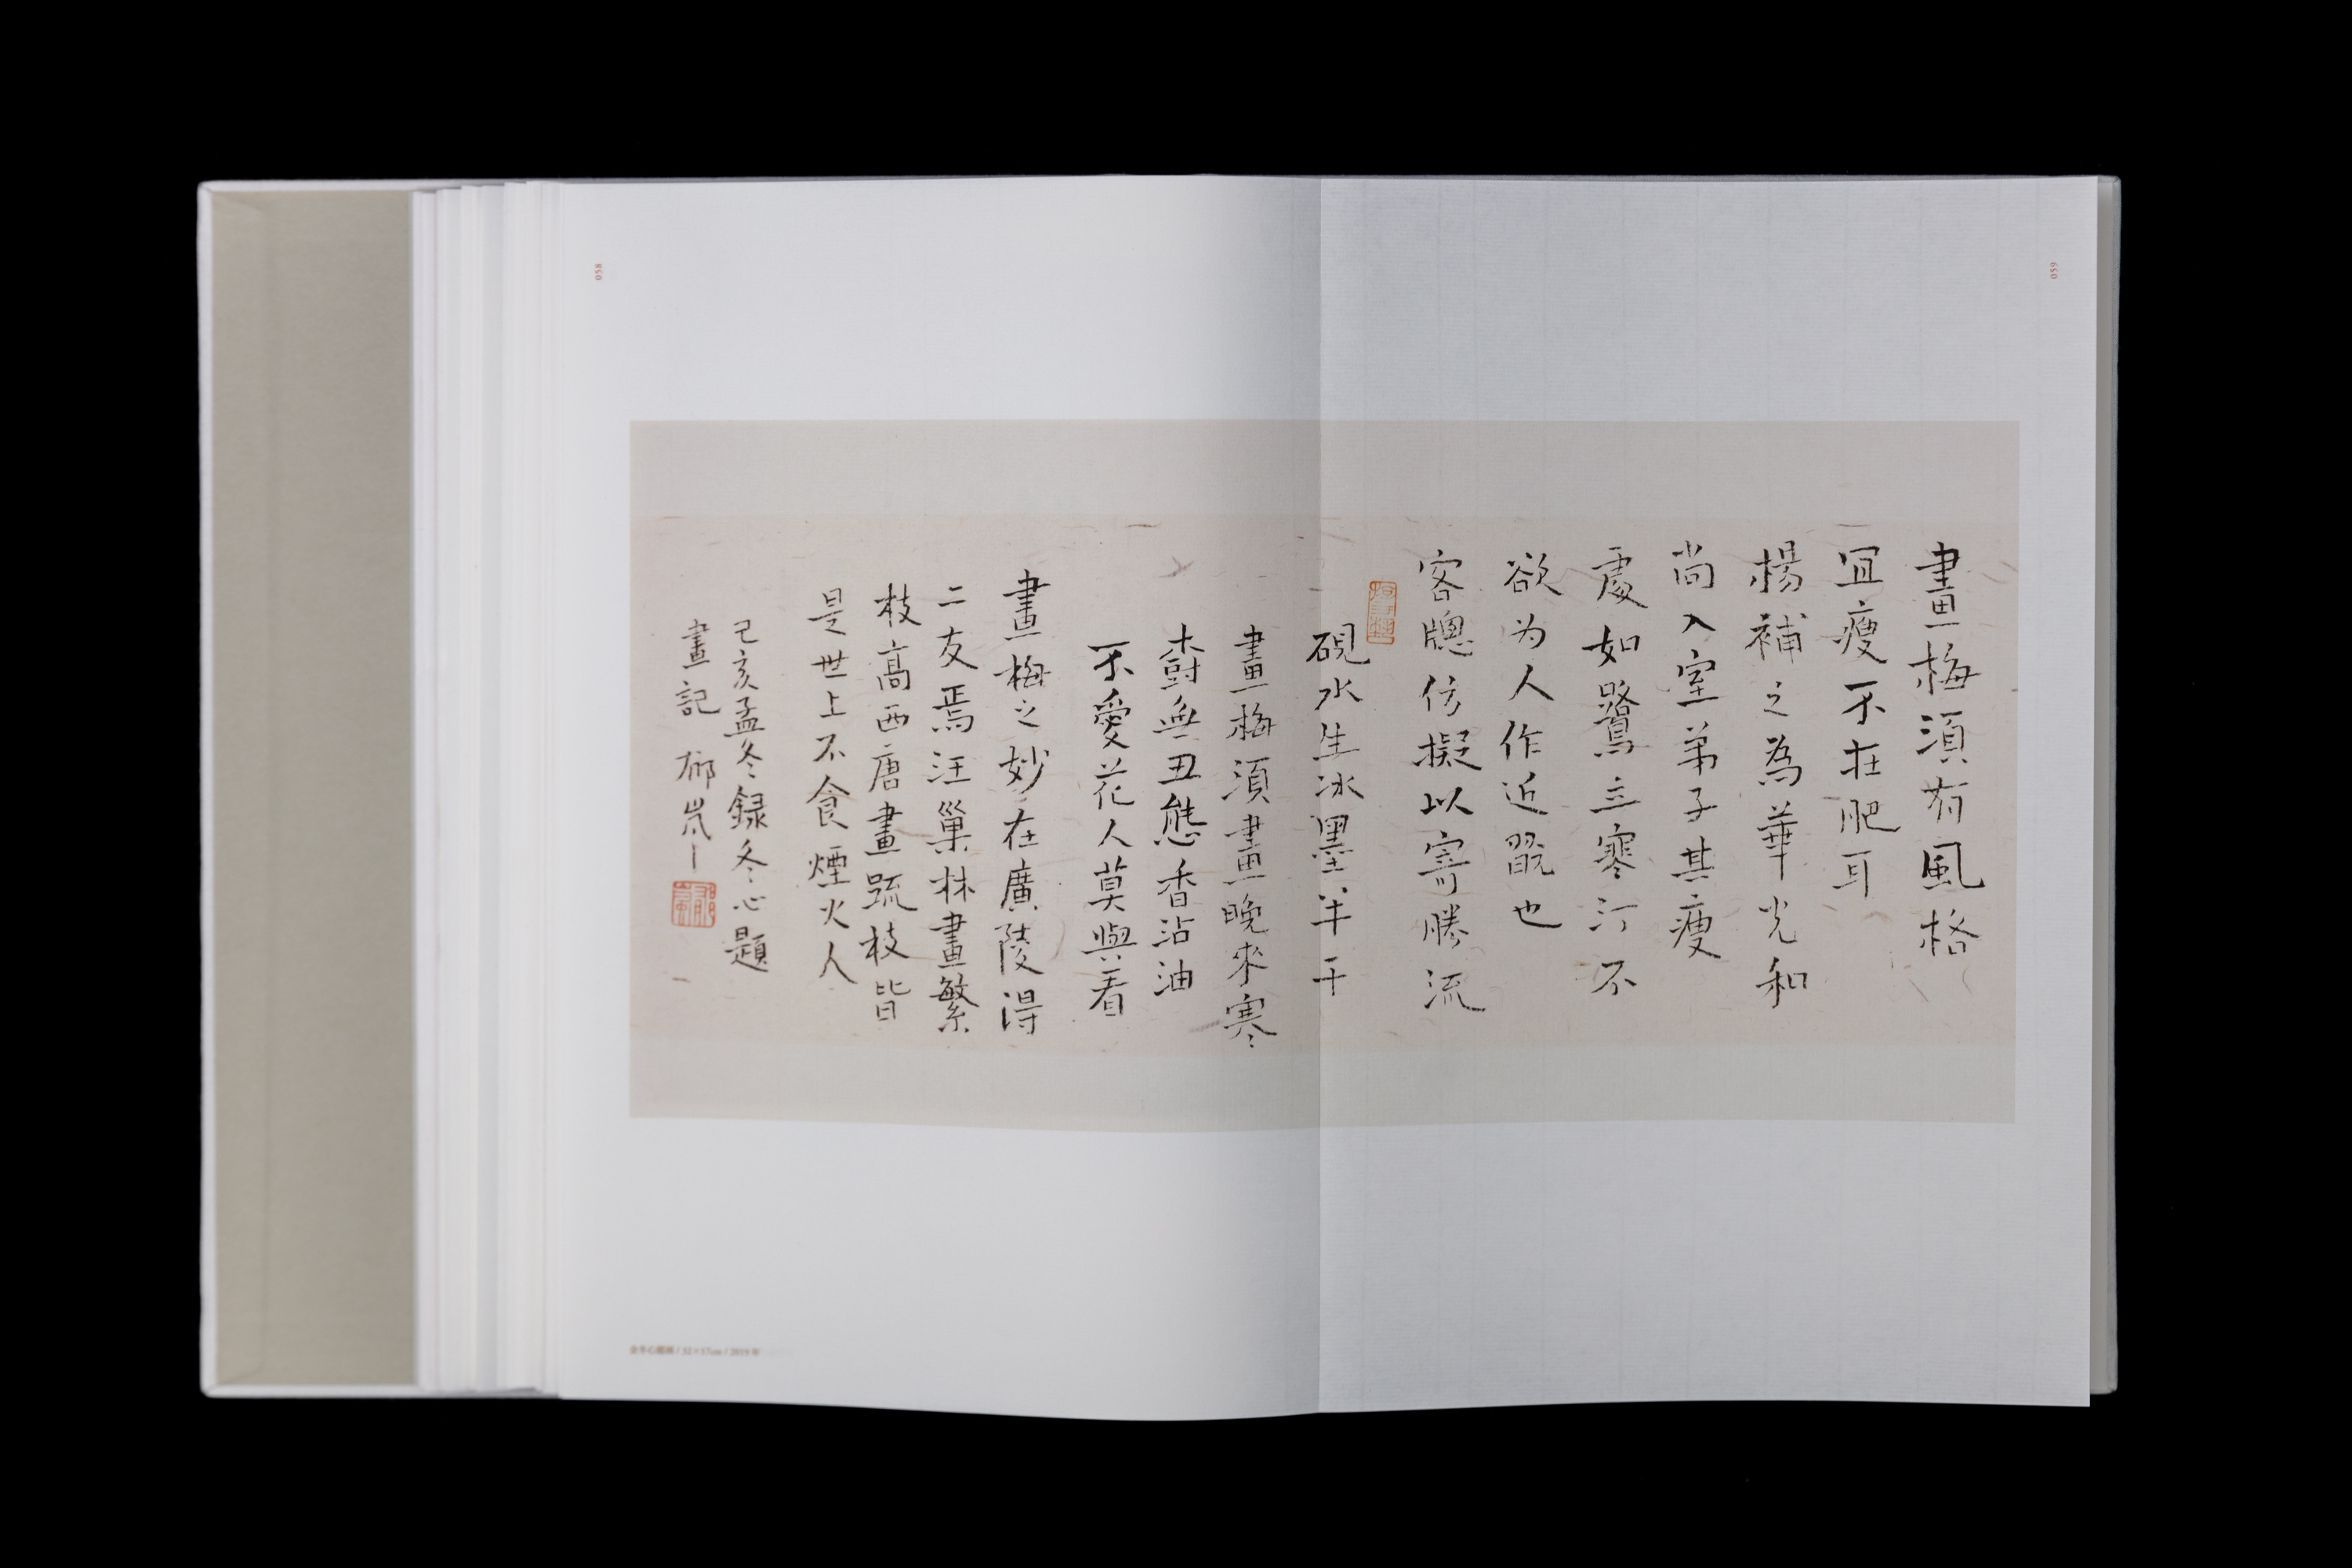 058
059
畫梅須有風格
宜瘦不在肥耳
楊補之為華光和
尚入室弟子其瘦
處如鷺立寒汀不
欲为人作近翫也
客牕仿擬以寄勝流
硯水生冰墨半干
畫梅須畫晚來寒
樹無丑態香沾油
不愛花人莫與看
畫梅之妙在廣陵得
二友焉汪巢林畫繁
枝高西唐畫疏枝皆
是世上不食煙火人
己亥孟冬録冬心題
畫記 郁
2019年